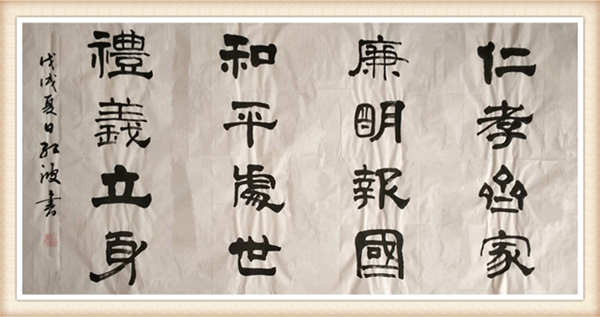 仁孝齊家
廉明報國
和平處世
禮義立身
戊戌夏日紅波書